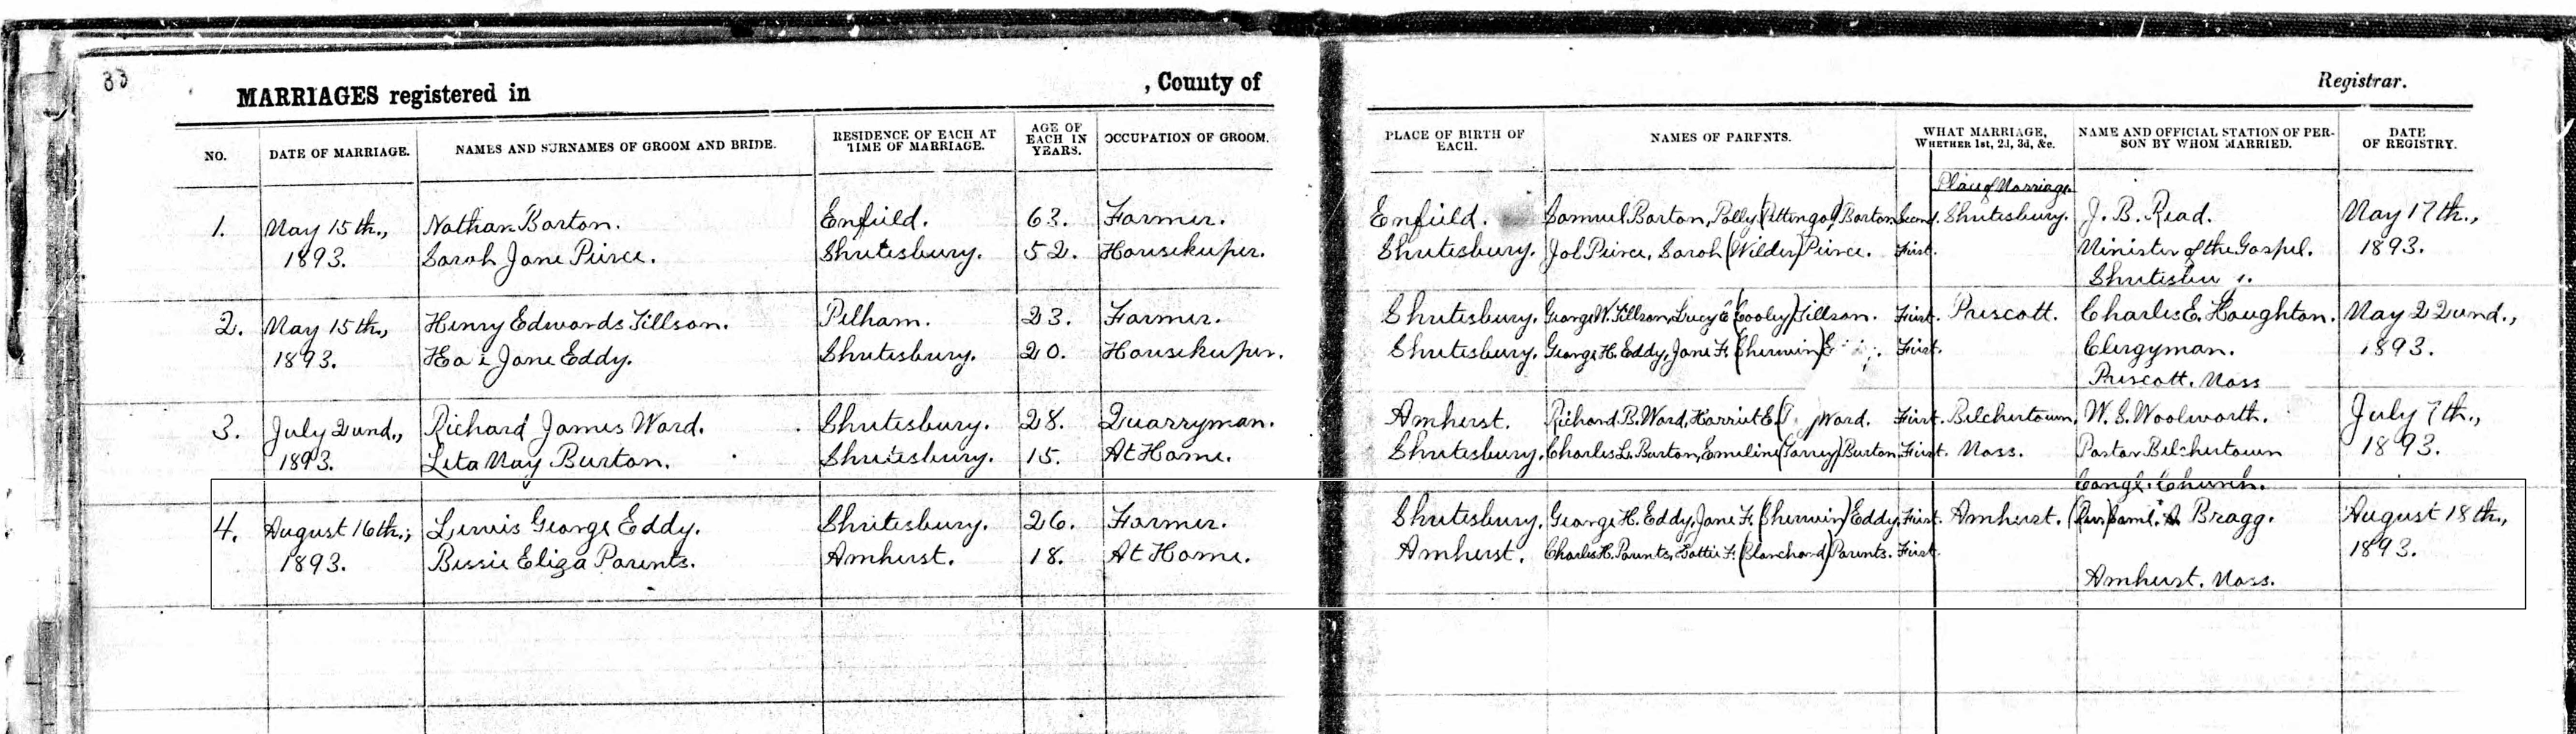 33
MARRIAGES registered in , County of Registrar.
NO. DATE OF MARRIAGE. NAMES AND SURNAMES OF GROOM AND BRIDE. RESIDENCE OF EACH AT TIME OF MARRIAGE. AGE OF EACH IN YEARS. OCCUPATION OF GROOM. PLACE OF BIRTH OF EACH. NAMES OF PARENTS. WHAT MARRIAGE, WHETHER 1st, 2d, 3d, &c. NAME AND OFFICIAL STATION OF PERSON BY WHOM MARRIED. DATE OF REGISTRY.
Place of Marriage
1. May 15th., Nathan Barton. Enfield. 63. Farmer. Enfield. Samuel Barton, Polly (Pettingal) Barton Second. Shutesbury. J. B. Read. May 17th.,
1893. Sarah Jane Peirce. Shutesbury. 52. Housekeeper. Shutesbury. Job Peirce, Sarah (Wilder) Peirce. First. Minister of the Gospel. 1893.
2. May 15th., Henry Edwards Tillson. Pelham. 23. Farmer. Shutesbury. George W. Tillson, Lucy E (Cooley) Tillson. First. Prescott. Charles E. Haughton. May 22und.,
1893. Jane Eddy. Shutesbury. 20. Housekeeper. Shutesbury. George H. Eddy, Jane F. (Sherwin) First. Clergyman. 1893.
Prescott. Mass
3. July 2und., Richard James Ward. Shutesbury. 28. Quarryman. Amherst. Richard B. Ward, Harriet E. Ward. First. Belchertown, W. S. Woolworth. July 7th.,
1893. Leta May Burton. Shutesbury. 15. At Home. Shutesbury. Charles L. Burton, Emeline (Torrey) Burton. First. Mass. Pastor Belchertown 1893.
Congl. Church.
4. August 16th., Lewis George Eddy. Shutesbury. 26. Farmer. Shutesbury. George H. Eddy, Jane F. (Sherwin) Eddy. First. Amherst. (Rev) Saml. A. Bragg. August 18th.,
1893. Bessie Eliza Parents. Amherst. 18. At Home. Amherst. Charles H. Parents, Hattie F. (Blanchard) Parents. First. 1893.
Amherst. Mass.